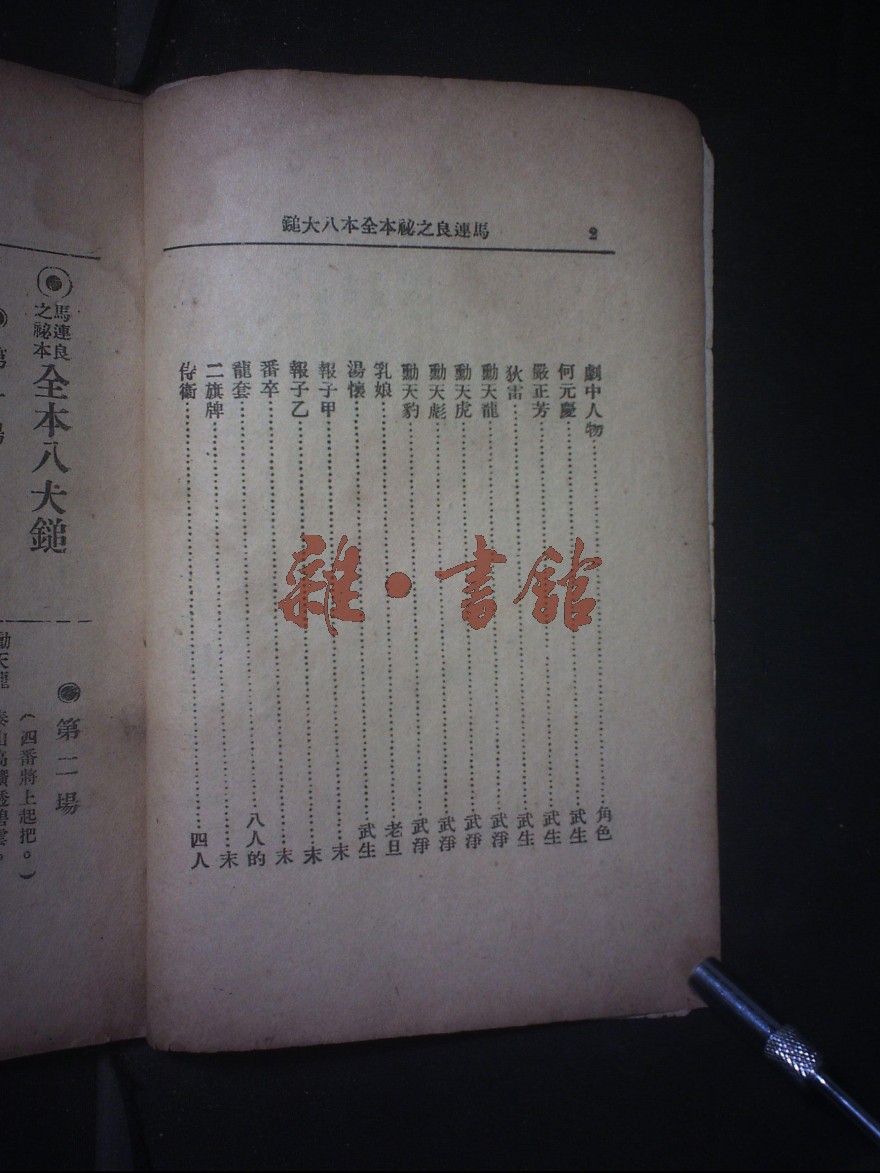 2
馬連良之祕本全本八大鎚
劇中人物……角色
何元慶……武生
嚴正芳……武生
狄雷……武生
勳天龍……武淨
勳天虎……武淨
勳天彪……武淨
勳天豹……武淨
乳娘……老旦
湯懷……武生
報子甲……末
報子乙……末
番卒……末
龍套……八人的
二旗牌……末
侍衛……四人
馬連良
之祕本
全本八大鎚
第二場
(四番將上起把。)
雜·書館